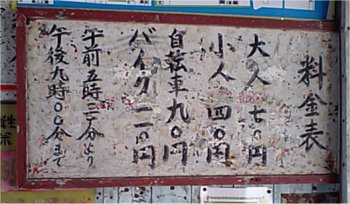 料金表
大人 七〇円
小人 四〇円
自転車 九〇円
バイク 一一〇円
午前五時三〇分より
午後九時〇〇分まで